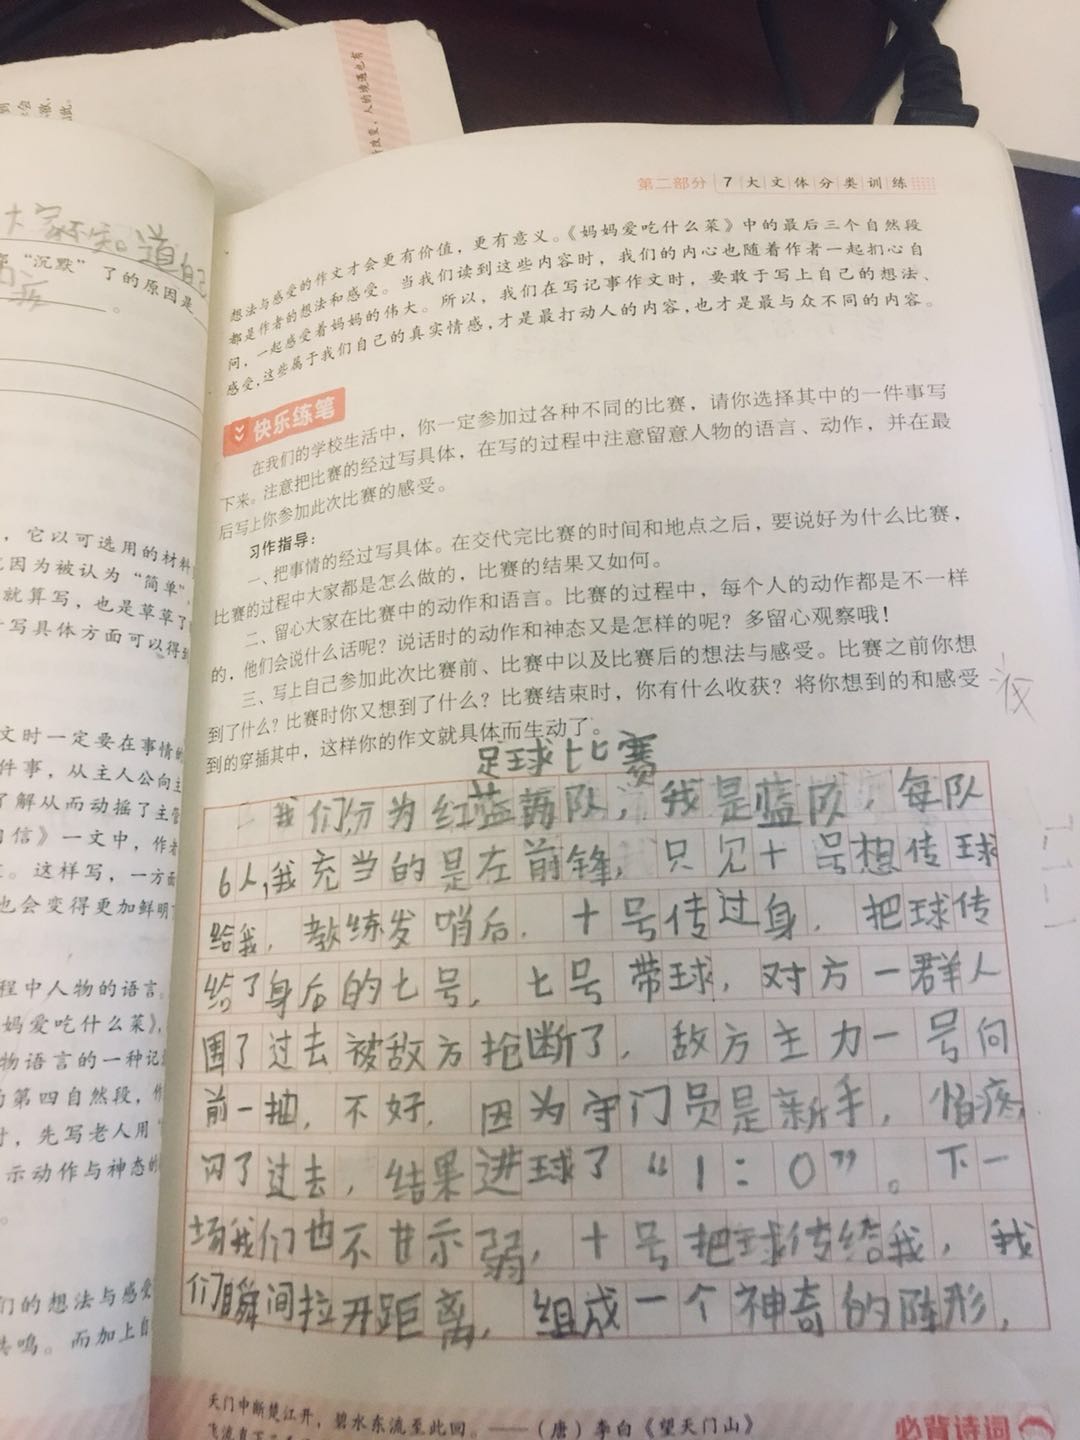 第二部分 7大文体分类训练
想法与感受的作文才会更有价值，更有意义。《妈妈爱吃什么菜》中的最后三个自然段
都是作者的想法和感受。当我们读到这些内容时，我们的内心也随着作者一起扪心自
问，一起感受着妈妈的伟大。所以，我们在写记事作文时，要敢于写上自己的想法、
感受，这些属于我们自己的真实情感，才是最打动人的内容，也才是最与众不同的内容。
快乐练笔
在我们的学校生活中，你一定参加过各种不同的比赛，请你选择其中的一件事写
下来。注意把比赛的经过写具体，在写的过程中注意留意人物的语言、动作，并在最
后写上你参加此次比赛的感受。
习作指导：
一、把事情的经过写具体。在交代完比赛的时间和地点之后，要说好为什么比赛，
比赛的过程中大家都是怎么做的，比赛的结果又如何。
二、留心大家在比赛中的动作和语言。比赛的过程中，每个人的动作都是不一样
的，他们会说什么话呢？说话时的动作和神态又是怎样的呢？多留心观察哦！
三、写上自己参加此次比赛前、比赛中以及比赛后的想法与感受。比赛之前你想
到了什么？比赛时你又想到了什么？比赛结束时，你有什么收获？将你想到的和感受
到的穿插其中，这样你的作文就具体而生动了。
足球比赛
我们分为红蓝两队，我是蓝队，每队
6人，我充当的是左前锋，只见十号想传球
给我，教练发哨后，十号传过身，把球传
给了身后的七号，七号带球，对方一群人
围了过去被敌方抢断了，敌方主力一号向
前一抽，不好，因为守门员是新手，怕疼，
闪了过去，结果进球了“1：0”。下一
场我们也不甘示弱，十号把球传给我，我
们瞬间拉开距离，组成一个神奇的阵形，
天门中断楚江开，碧水东流至此回。——（唐）李白《望天门山》
必背诗词
大家不知道自己
“沉默”了的原因是
。
，它以可选用的材料
因为被认为“简单”，
就算写，也是草草了
写具体方面可以得到
文时一定要在事情的
件事，从主人公向主
了解从而动摇了主管
信》一文中，作者
。这样写，一方面
也会变得更加鲜明
程中人物的语言。
妈爱吃什么菜》，
物语言的一种记
的第四自然段，作
时，先写老人用
示动作与神态的
们的想法与感受
共鸣。而加上自